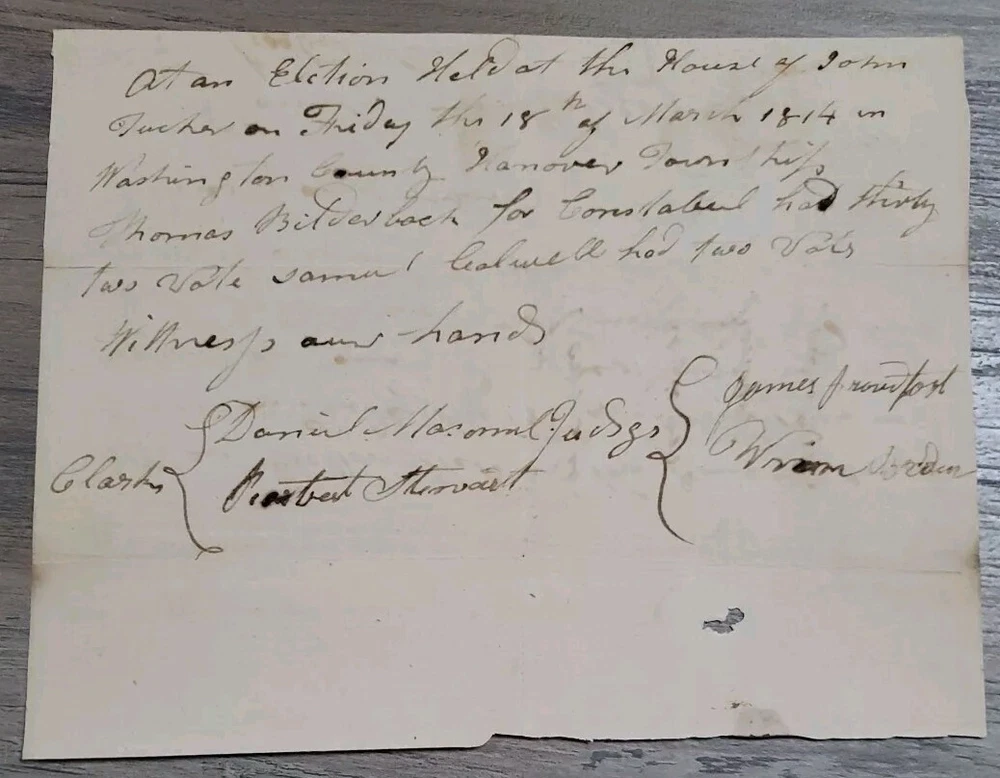 At an Elction Held at the House of John
Tucker on Friday the 18th of March 1814 in
Washington County Hanover Township
Thomas Bilderback for Constabeel had thirty
two Vote Samul Calwell had two Vots
Wittness our hands
Clarks { Daniel Judges { James
Robert Stewart Jordan